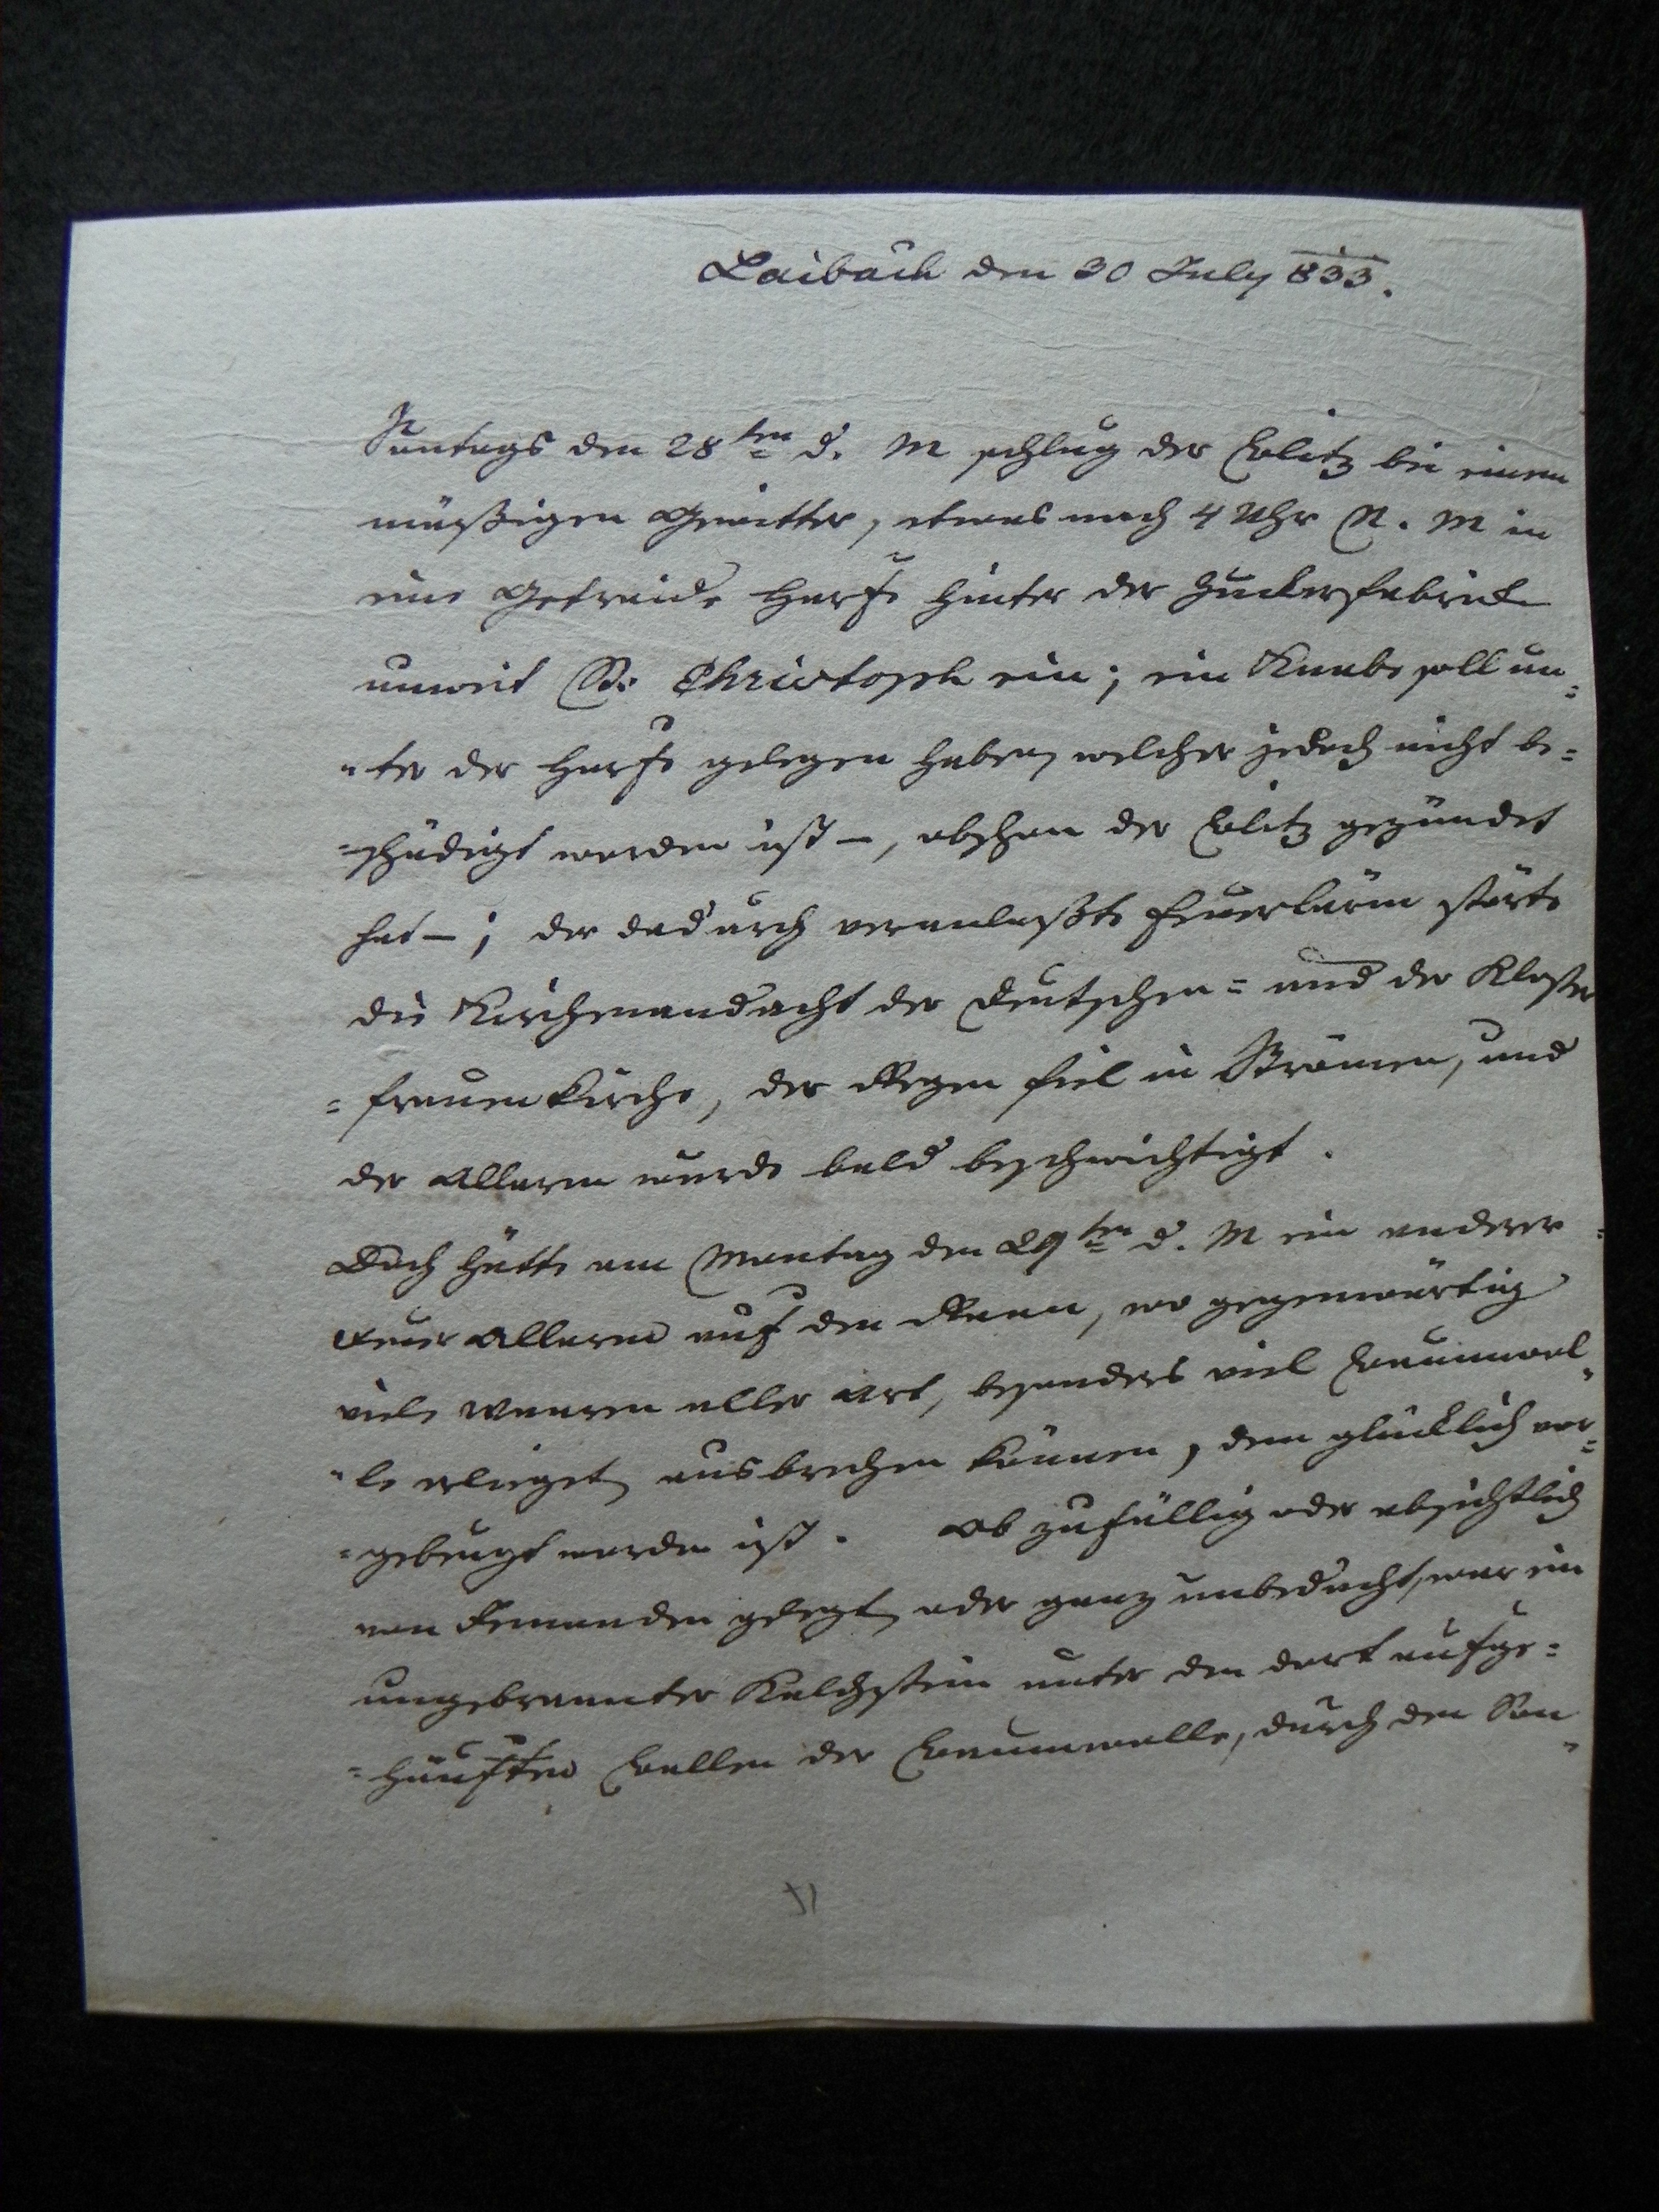 Laibach den 30 July 833.
Sontags den 28ten d. M schlug der Blitz bei einem
mäßigen Gewitter, etwas nach 4 Uhr N. M in
eine Getreide Harfe hinter der Zuckerfabrick
unweit St. Christoph ein; ein Knabe soll un=
=ter der Harfe gelegen haben, welcher jedoch nicht be=
=schädigt worden ist –, obschon der Blitz gezündet
hat –; der dadurch veranlaßte Feuerlärm störte
die Kirchenandacht der Deutschen= und der Kloster
=frauenkirche, der Regen fiel in Strömen, und
der Allarm wurde bald beschwichtigt.
Doch hätte am Montag den 29ten d. M ein anderer=
Feuer Allarm auf den Raan, wo gegenwärtig
viele Waaren aller Art, besonders viel Baumwol=
=le erlieget, ausbrechen können, dem glücklich vor=
=gebeugt worden ist. Ob zufällig oder absichtlich
von Jemanden gelegt, oder ganz unbedacht, war ein
ungebrannter Kalchstein unter den dort aufge=
=häuften Ballen der Baumwolle, durch den Son=